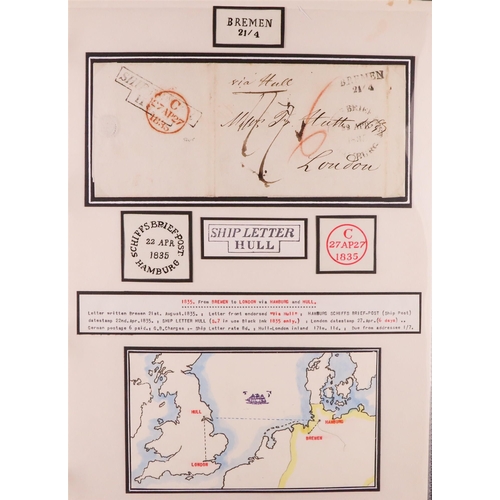 BREMEN
21/4
SHIP
C
27AP27
1835
via Hull
BREMEN
21/4
London
SCHIFFS.BRIEF-POST.
22 APR
1835
HAMBURG
SHIP LETTER
HULL
C
27AP27
1835
1835. From BREMEN to LONDON via HAMBURG and HULL.
Letter written Bremen 21st, august.1835. ; Letter front endorsed "Via Hull" ; HAMBURG SCHIFFS BRIEF-POST (Ship Post)
datestamp 22nd.Apr.1835. ; SHIP LETTER HULL ( in use Black ink 1835 only.) ; London datestamp 27.Apr.(6 days) .
German postage 6 paid. ; G.B.Charges :- Ship Letter rate 8d. ; Hull-London inland 11d. ; Due from addressee 1/7.
HULL
LONDON
HAMBURG
BREMEN